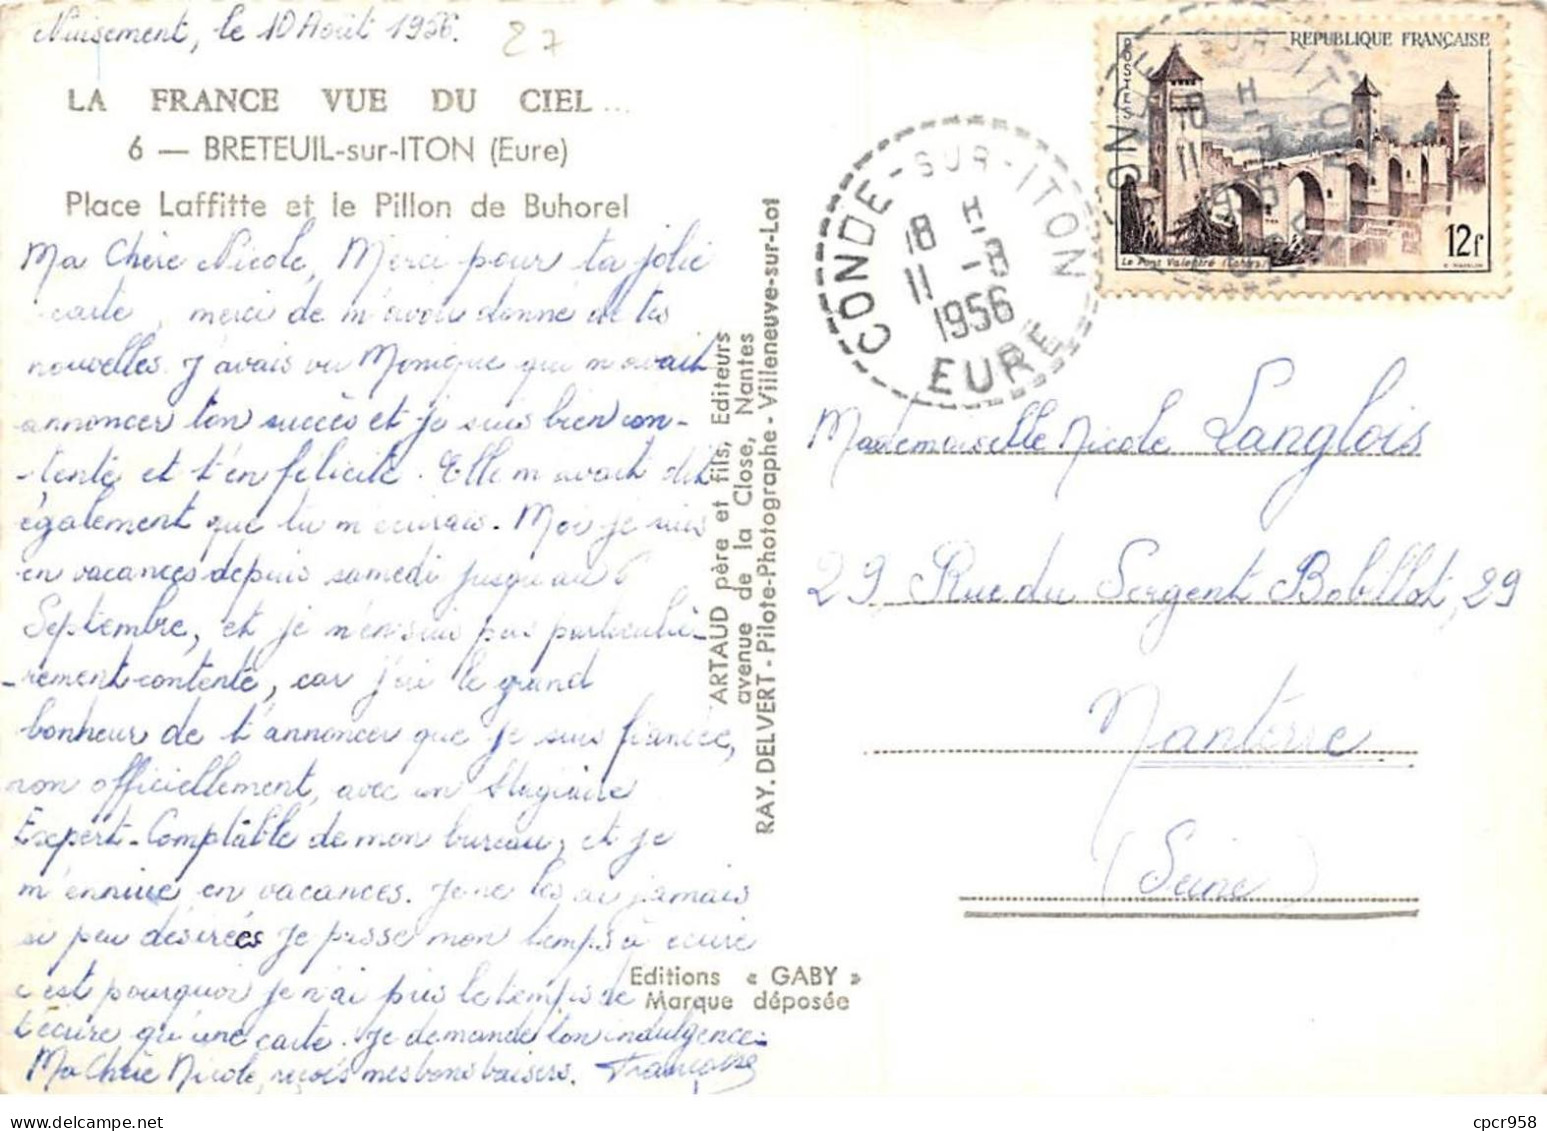 Nuisement, le 10 Août 1956.
27
LA FRANCE VUE DU CIEL...
6 — BRETEUIL-sur-ITON (Eure)
Place Laffitte et le Pillon de Buhorel
Ma Chère Nicole, Merci pour ta jolie
carte, merci de m'avoir donné de tes
nouvelles. J'avais vu Monique qui m'avait
annoncer ton succès et je suis bien con-
-tente et t'en félicite. Elle m'avait dit
également que tu m'écrirais. Moi je suis
en vacances depuis samedi jusqu'au 6
Septembre, et je n'en suis pas particuliè-
-rement contente, car j'ai le grand
bonheur de t'annoncer que je suis fiancée,
non officiellement, avec un Stagiaire
Expert-Comptable de mon bureau, et je
m'ennuie en vacances. Je ne les ai jamais
si peu désirées je passe mon temps à écrire
c'est pourquoi je n'ai pris le temps de
t'écrire qu'une carte. Je demande ton indulgence.
Ma Chère Nicole, reçois mes bons baisers. Françoise
ARTAUD père et fils, Editeurs
avenue de la Close, Nantes
RAY. DELVERT - Pilote-Photographe - Villeneuve-sur-Lot
Editions « GABY »
Marque déposée
CONDE-SUR-ITON
18 H
11 -8
1956
EURE
POSTES
REPUBLIQUE FRANÇAISE
Le Pont Valentré (Cahors)
12f
CONDE-SUR-ITON
18 H
11 -8
1956
Mademoiselle Nicole Langlois
29 Rue du Sergent Bobillot, 29
Nanterre
(Seine)
cpcr958